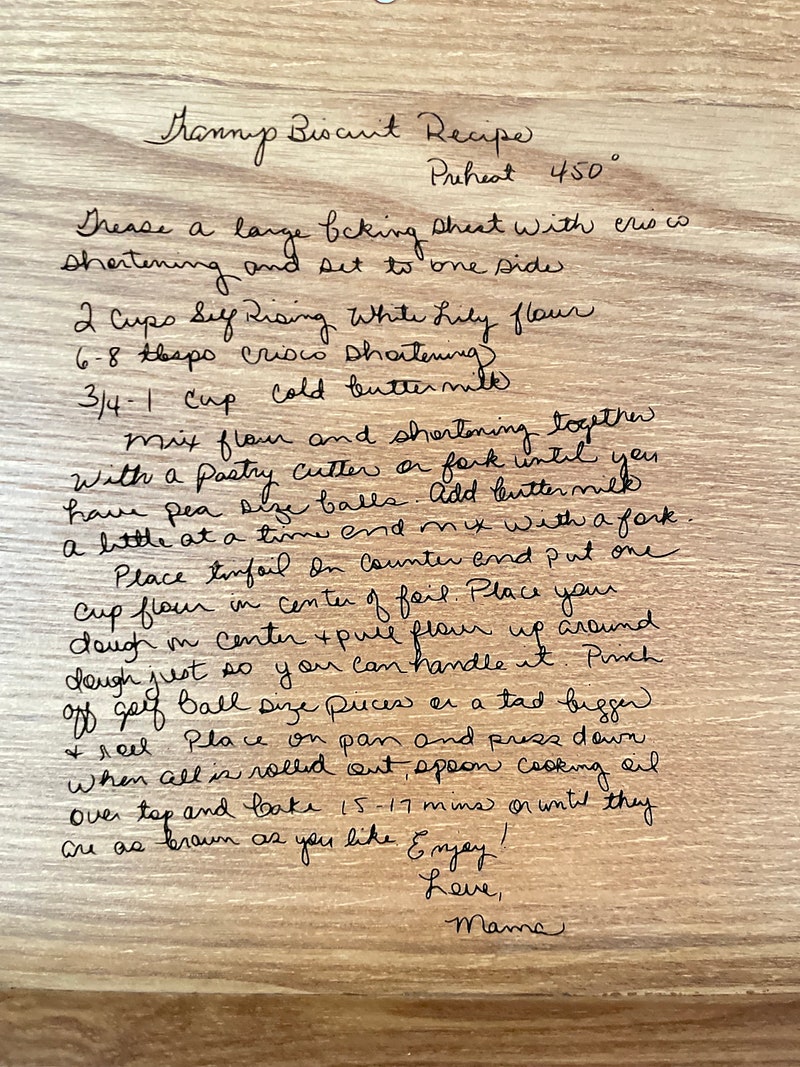 Grannys Biscuit Recipe
Preheat 450°
Grease a large baking sheet with crisco
shortening and set to one side
2 Cups Self Rising White Lily flour
6-8 tbspo crisco shortening
3/4-1 cup cold buttermilk
Mix flour and shortening together
with a pastry cutter or fork until you
have pea size balls. Add buttermilk
a little at a time and mix with a fork.
Place tinfoil on counter and put one
cup flour in center of foil. Place your
dough in center + pull flour up around
dough just so you can handle it. Pinch
off golf ball size pieces or a tad bigger
+ roll. Place on pan and press down
When all is rolled out, spoon cooking oil
over top and bake 15-17 mins or until they
are as brown as you like. Enjoy!
Love,
Mama